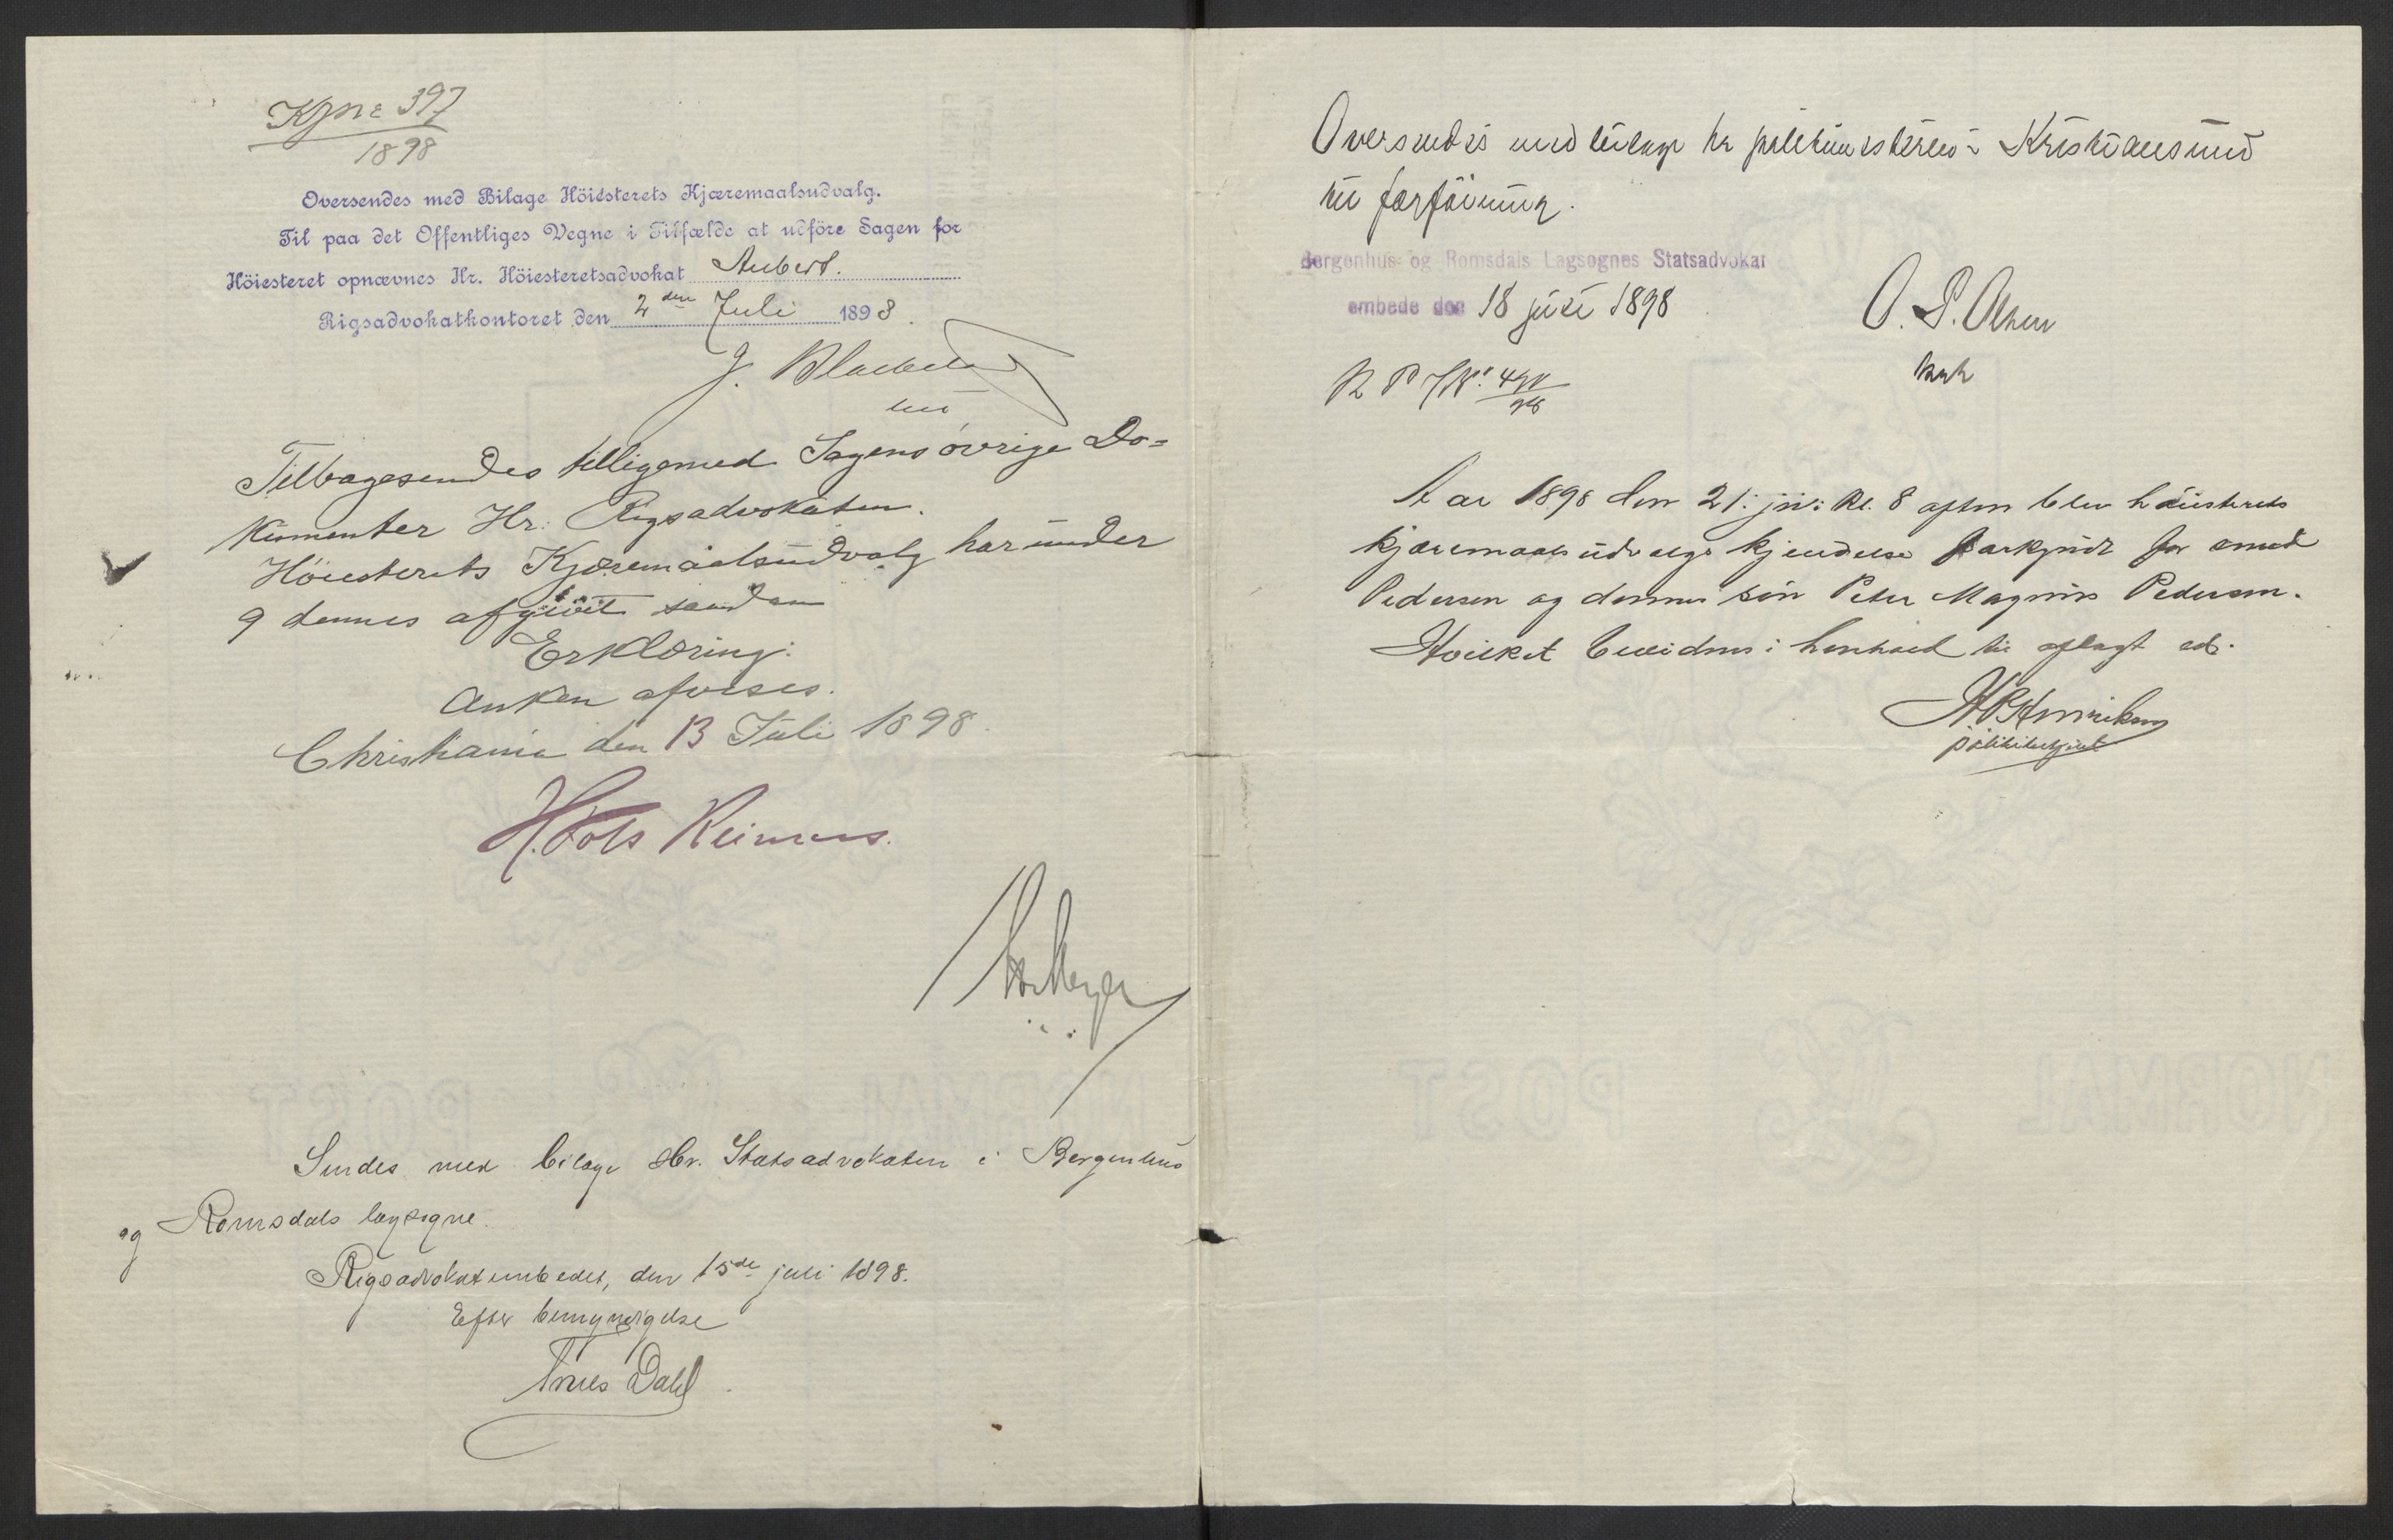 Kjm 397
1898
Oversendes med Bilage Höiesterets Kjæremaalsudvalg.
Til paa det Offentliges Vegne i Tilfælde at udföre Sagen for
Höiesteret opnævnes Hr. Höiesteretsadvokat Aubert.
Rigsadvokatkontoret den 2den Juli 1898.
J.
Tilbagesendes tilligemed Sagens øvrige Do=
kumenter Hr. Rigsadvokaten.
Höiesterets Kjæremaalsudvalg har under
9 dennes afgivet saadan
Erklæring:
Anken afvises.
Christiania den 13 Juli 1898.
H. Reimers.
Sendes med bilage Hr. Statsadvokaten i Bergenhus
og Romsdals lagsogne.
Rigsadvokatembedet, den 15de juli 1898.
Efter bemyndigelse
Dahl
Oversendes med bilage hr politimesteren i Kristiansund
til forföining.
Bergenhus- og Romsdals Lagsognes Statsadvokat
embede den 18 juli 1898
O. S. Olsen
Aar 1898 den 21. juli kl. 8 aften blev höiesterets
kjæremaalsudvalgs kjendelse forkyndt for smed
Pedersen og dennes sön Peter Magnus Pedersen.
Hvilket bevidnes i henhold til aflagt ed.
politibetjent
NORMAL POST
NORMAL POST